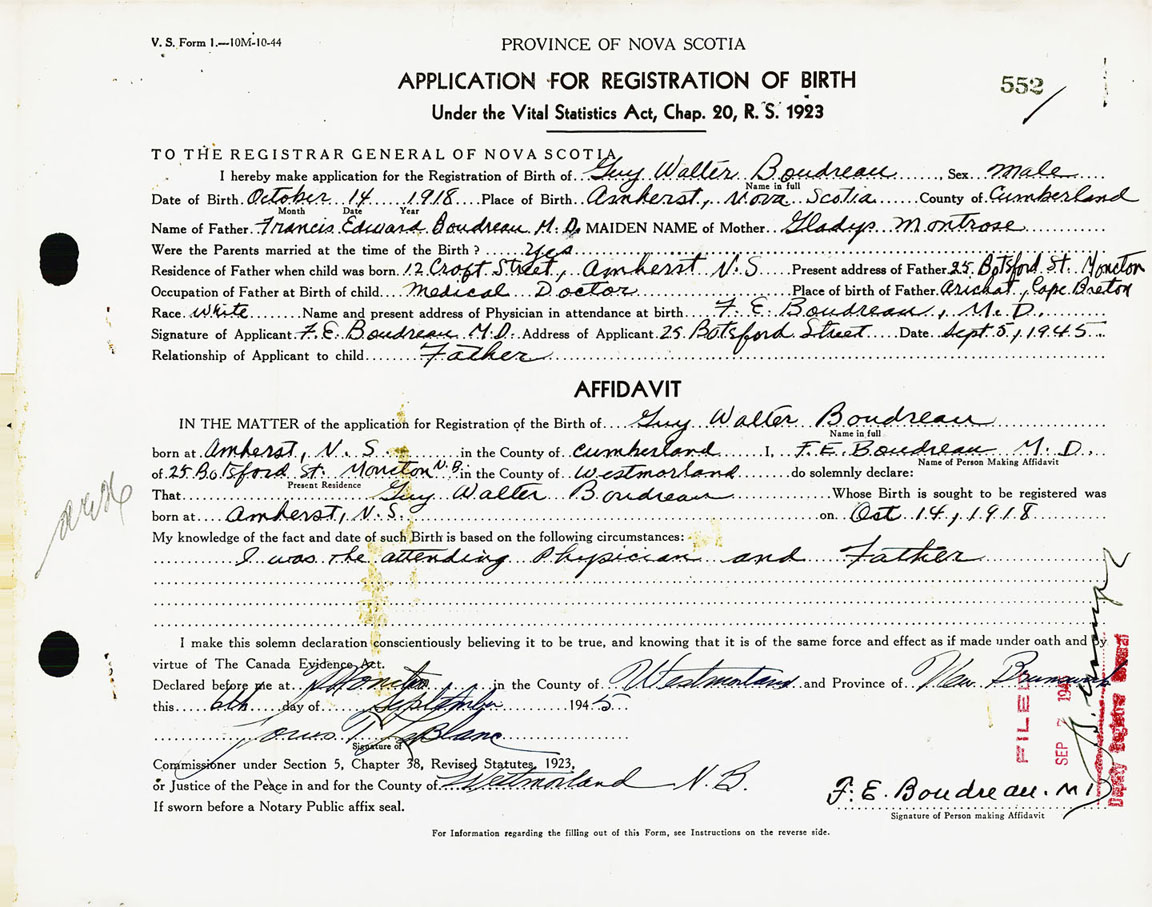 V. S. Form 1.—10M-10-44
PROVINCE OF NOVA SCOTIA
APPLICATION FOR REGISTRATION OF BIRTH
552
Under the Vital Statistics Act, Chap. 20, R. S. 1923
TO THE REGISTRAR GENERAL OF NOVA SCOTIA
I hereby make application for the Registration of Birth of Guy Walter Boudreau, Sex Male
Name in full
Date of Birth October 14 1918 Place of Birth Amherst, Nova Scotia County of Cumberland
Month Date Year
Name of Father Francis Edward Boudreau M.D. MAIDEN NAME of Mother Gladys Montrose
Were the Parents married at the time of the Birth? Yes
Residence of Father when child was born 12 Croft Street, Amherst N.S Present address of Father 25 Botsford St. Moncton
Occupation of Father at Birth of child Medical Doctor Place of birth of Father Arichat, Cape Breton
Race White Name and present address of Physician in attendance at birth F. E. Boudreau, M.D.
Signature of Applicant F. E. Boudreau M.D. Address of Applicant 25 Botsford Street Date Sept. 5, 1945
Relationship of Applicant to child Father
AFFIDAVIT
IN THE MATTER of the application for Registration of the Birth of Guy Walter Boudreau
Name in full
born at Amherst, N. S. in the County of Cumberland I, F. E. Boudreau M. D.
Name of Person Making Affidavit
of 25 Botsford St. Moncton N.B. in the County of Westmorland do solemnly declare:
Present Residence
That Guy Walter Boudreau Whose Birth is sought to be registered was
born at Amherst, N.S. on Oct 14, 1918
My knowledge of the fact and date of such Birth is based on the following circumstances:
I was the attending Physician and Father
I make this solemn declaration conscientiously believing it to be true, and knowing that it is of the same force and effect as if made under oath and by
virtue of The Canada Evidence Act.
Declared before me at Moncton in the County of Westmorland and Province of New Brunswick
this 6th day of September 1945
LeBlanc
Signature of
Commissioner under Section 5, Chapter 38, Revised Statutes, 1923,
or Justice of the Peace in and for the County of Westmorland N.B.
If sworn before a Notary Public affix seal.
F. E. Boudreau. M D
Signature of Person making Affidavit
FILED
SEP 7 194
Deputy Registrar General
For Information regarding the filling out of this Form, see Instructions on the reverse side.